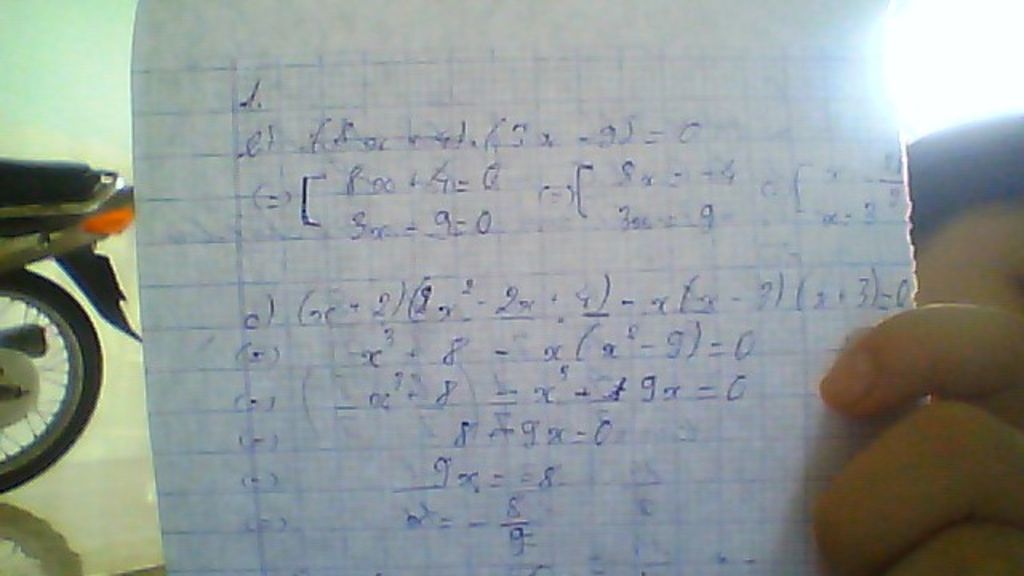 1.
e) (8x + 4).(3x - 9) = 0
(=) [ 8x + 4 = 0 (=) [ 8x = -4 (=) [ x =
3x - 9 = 0 3x = 9 x = 3
c) (x + 2)(x² - 2x + 4) - x(x - 3)(x + 3) = 0
(=) x³ + 8 - x(x² - 9) = 0
(=) x³ + 8 - x³ + 9x = 0
(=) 8 + 9x = 0
(=) 9x = -8
(=) x = -8/9